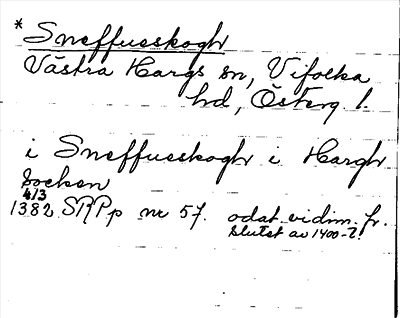 * Sneffusskogh
Västra Hargs sn, Vifolka
hd, Österg l.
i Sneffusskogh i Hargh
socken
4/3
1382 SRPp nr 57. odat. vidim. fr.
slutet av 1400-t.